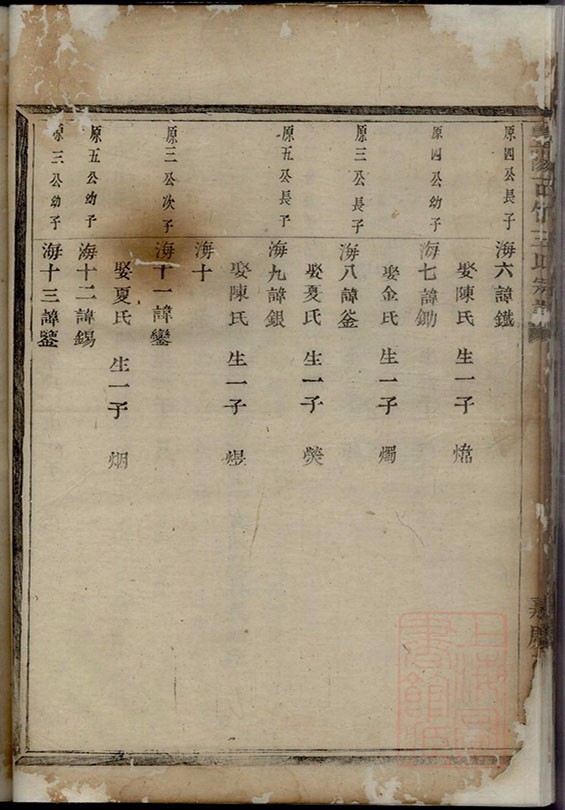 原四公長子
海六諱鐵
娶陳氏 生一子
原四公幼子
海七諱鋤
娶金氏 生一子 燭
原三公長子
海八諱釜
娶夏氏 生一子 熒
原五公長子
海九諱銀
娶陳氏 生一子 煜
海十
原三公次子
海十一諱鑾
娶夏氏 生一子 烟
原五公幼子
海十二諱錫
原三公幼子
海十三諱鑒
上海圖書館藏